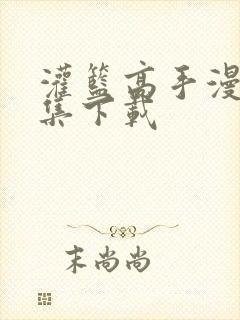 灌籃高手漫
集下載
末尚尚